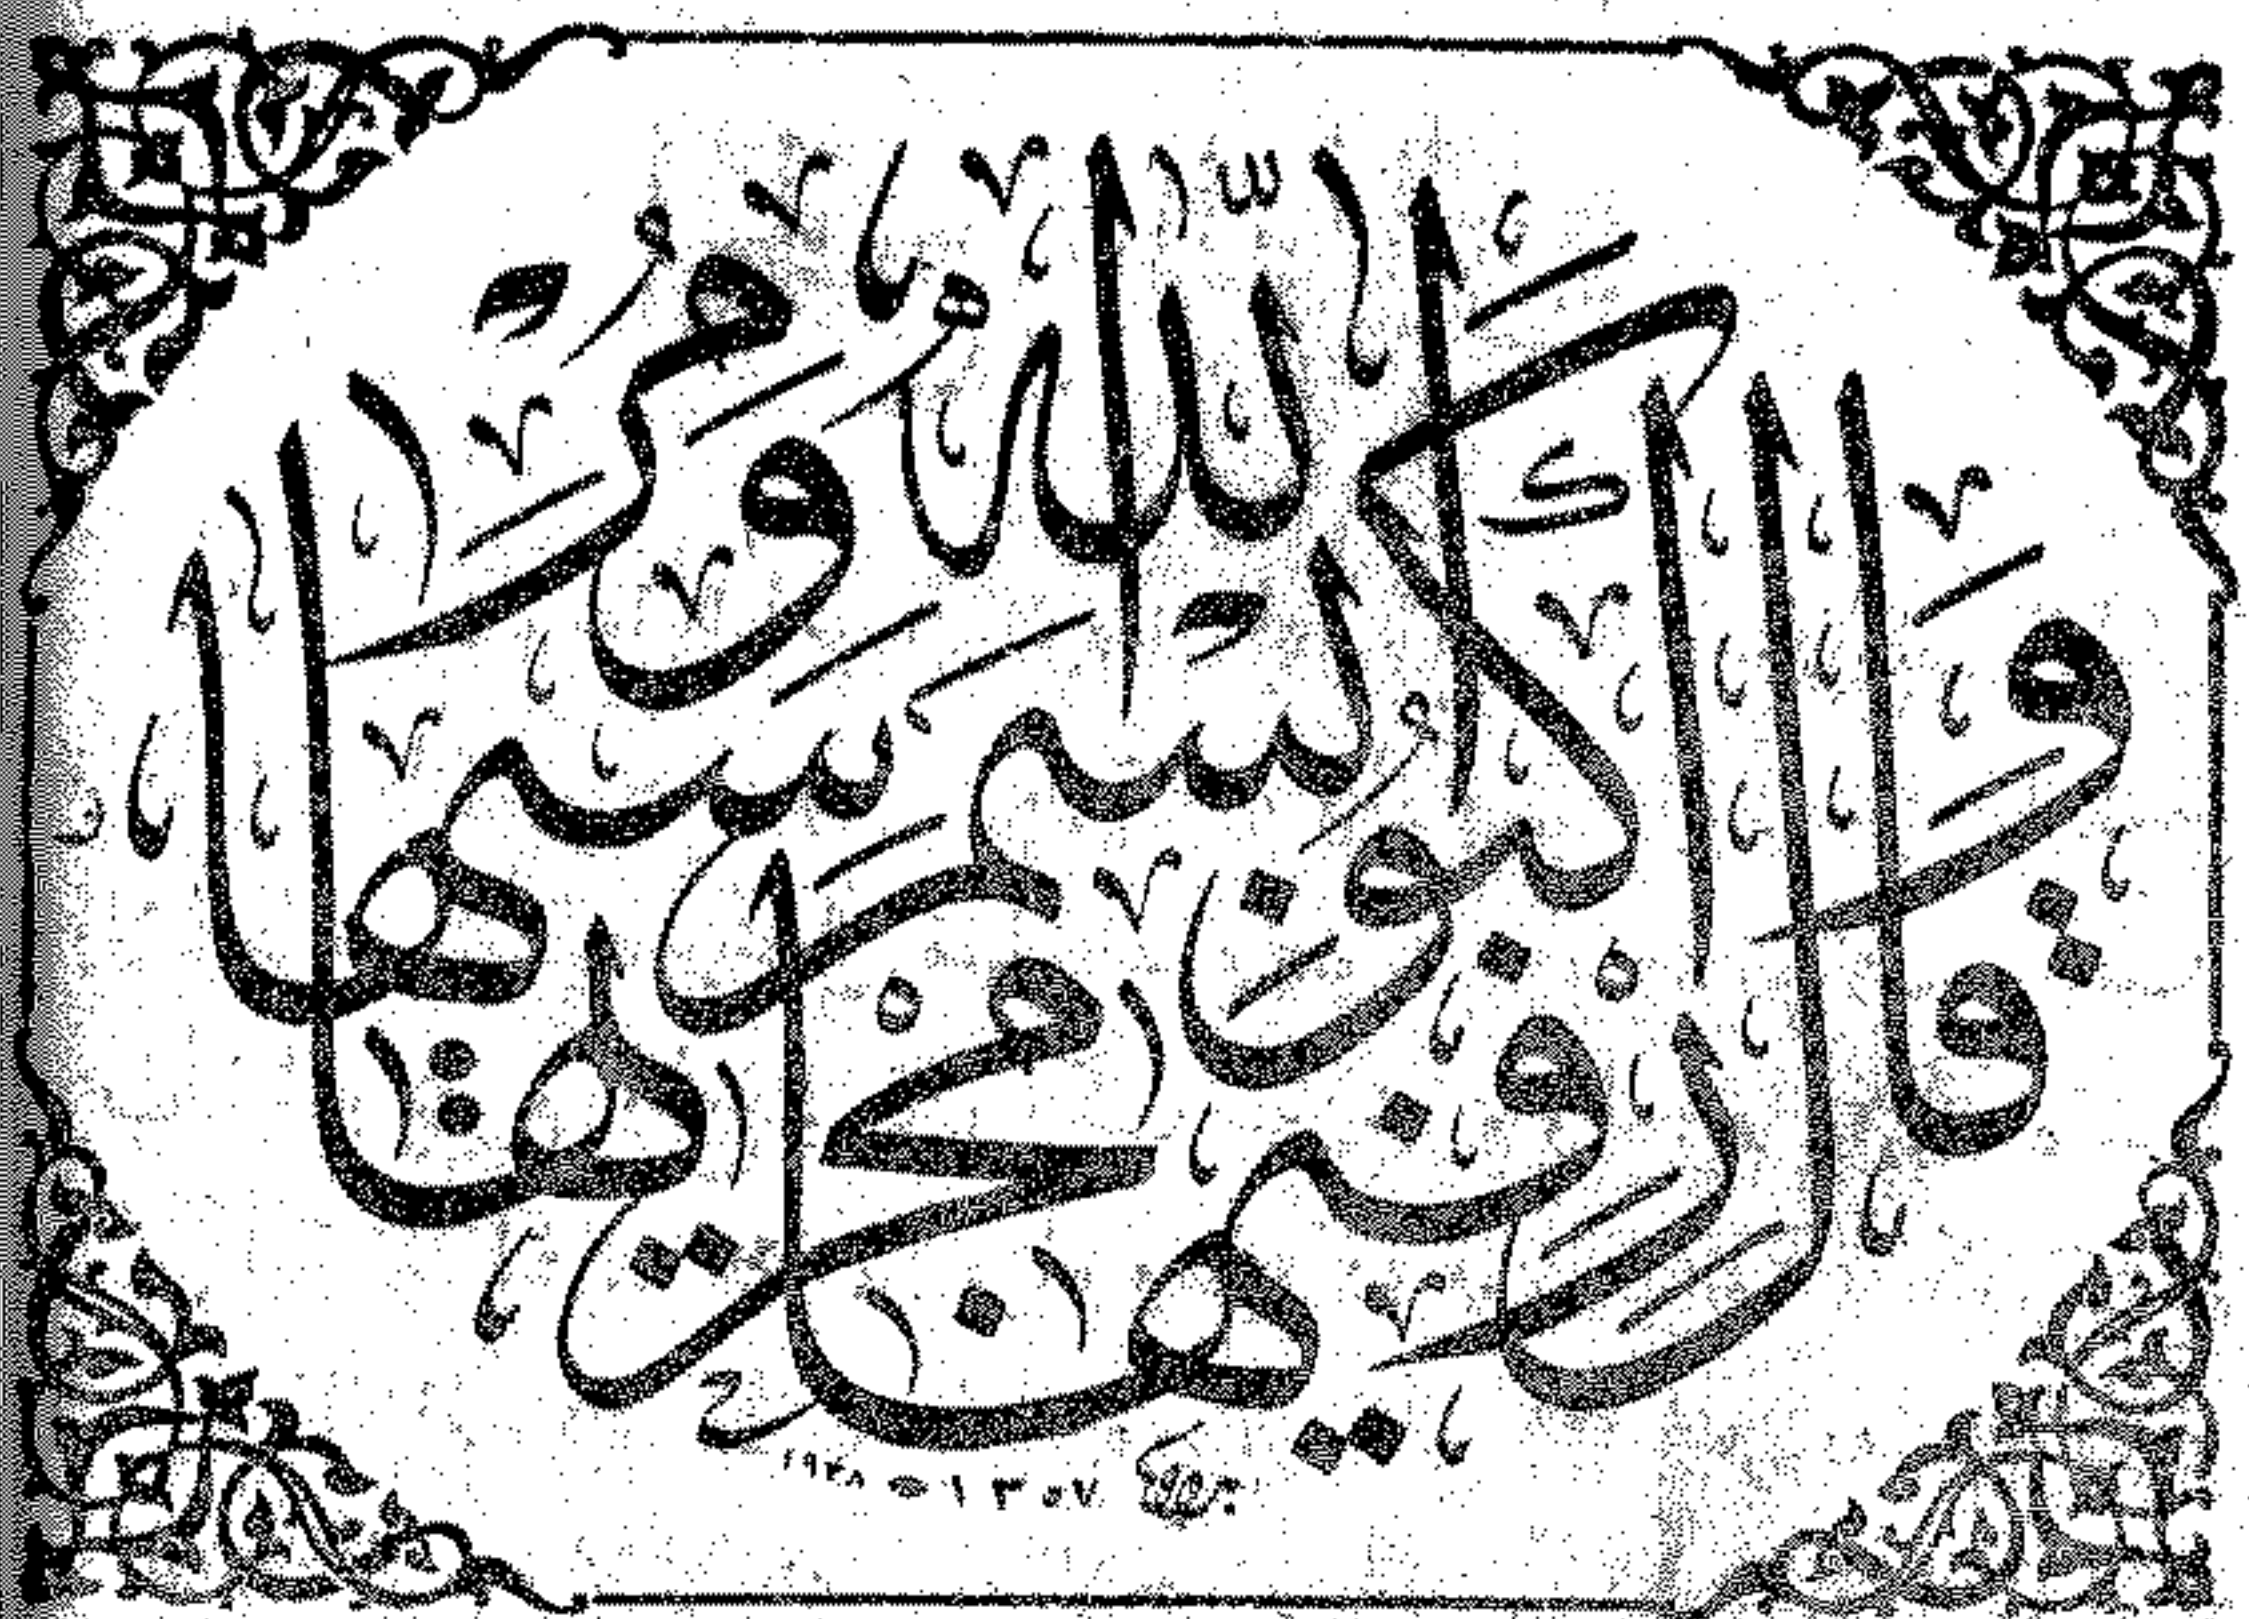 وَقَالَ ارْكَبُوا فِيهَا بِسْمِ اللَّهِ مَجْرٰيهَا وَمُرْسٰيهَا
١٣٥٧ - ١٩٣٨